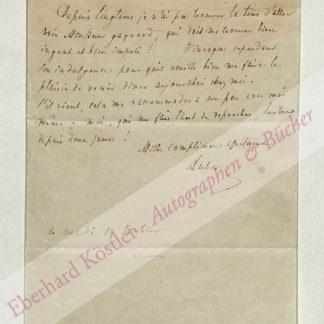 Depuis longtems je n'ai pu trouver le tems d'aller
voir Monsieur gagnard, qui doit me trouver bien
ingrat et bien impoli ! J'invoque cependant
son indulgence pour qu'il veuille bien me faire le
plaisir de venir diner aujourd'hui chez moi.
S'il vient, cela me raccommodera un peu avec moi
même ; moi, qui me fais tant de reproches, surtout
depuis deux jours !
Mille complimens affectueux
Auber
ce mardi 14
Eberhard Köstler Autographen & Bücher